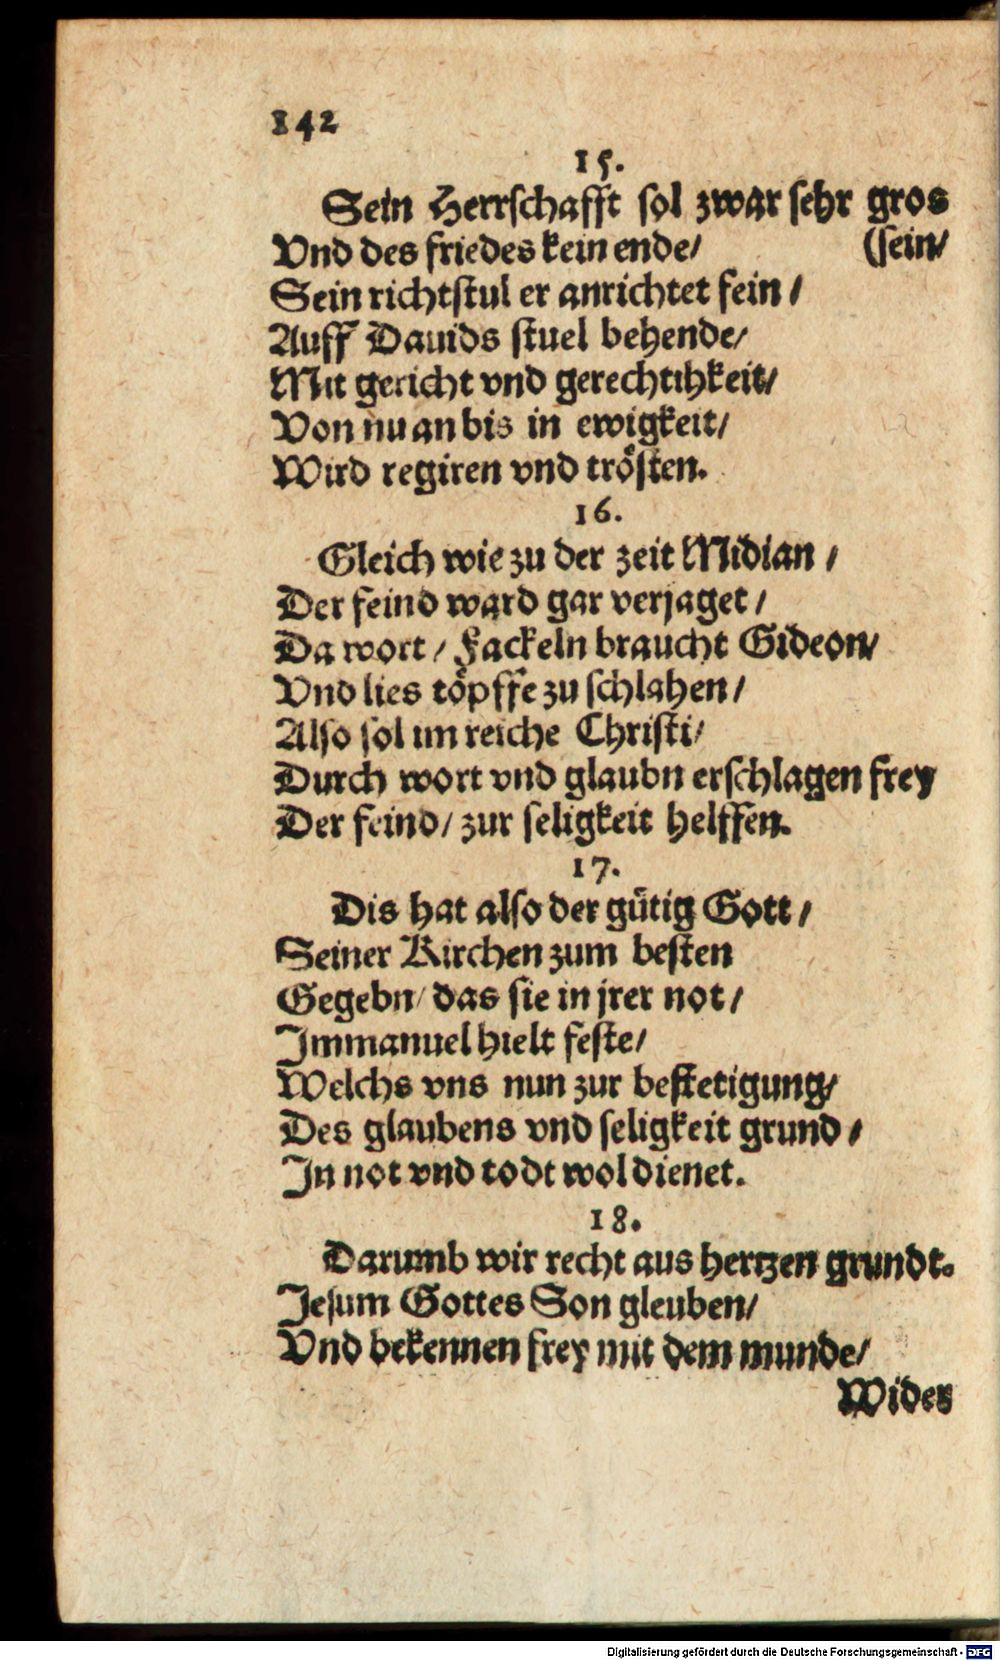 142
15.
Sein Herrschafft sol zwar sehr gros
Vnd des friedes kein ende/ (sein/
Sein richtstul er anrichtet fein /
Auff Dauids stuel behende/
Mit gericht vnd gerechtihkeit/
Von nu an bis in ewigkeit/
Wird regiren vnd trösten.
16.
Gleich wie zu der zeit Midian /
Der feind ward gar verjaget /
Da wort / Fackeln braucht Gideon/
Vnd lies töpffe zu schlahen /
Also sol im reiche Christi/
Durch wort vnd glaubn erschlagen frey
Der feind / zur seligkeit helffen.
17.
Dis hat also der gütig Gott /
Seiner Kirchen zum besten
Gegebn / das sie in jrer not /
Immanuel hielt feste/
Welchs vns nun zur bestetigung/
Des glaubens vnd seligkeit grund /
In not vnd todt wol dienet.
18.
Darumb wir recht aus hertzen grundt.
Jesum Gottes Son gleuben/
Vnd bekennen frey mit dem munde/
Wider
Digitalisierung gefördert durch die Deutsche Forschungsgemeinschaft - DFG